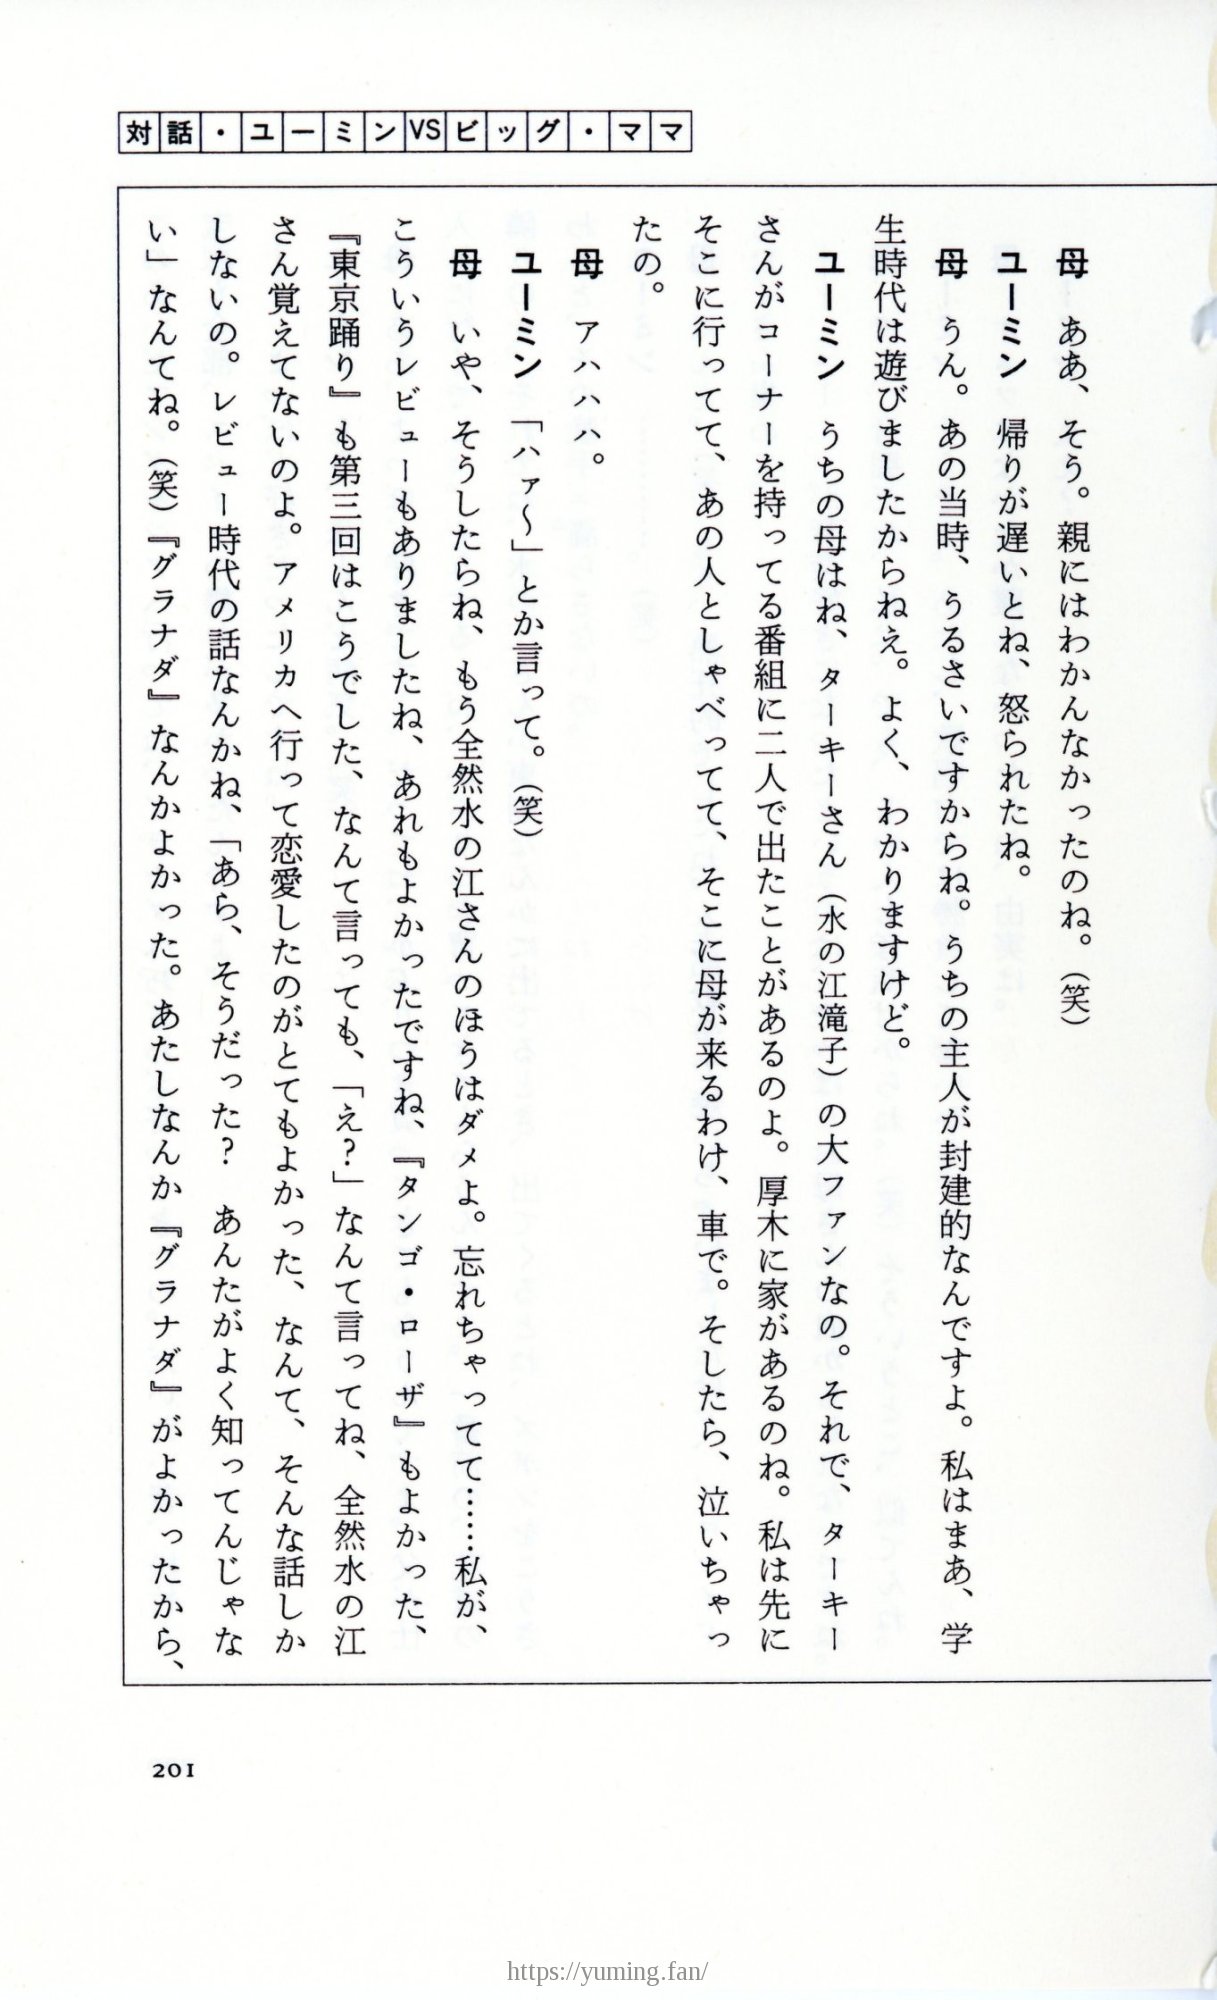 対話・ユーミンVSビッグ・ママ
母　ああ、そう。親にはわかんなかったのね。（笑）
ユーミン　帰りが遅いとね、怒られたね。
母　うん。あの当時、うるさいですからね。うちの主人が封建的なんですよ。私はまあ、学
生時代は遊びましたからねえ。よく、わかりますけど。
ユーミン　うちの母はね、ターキーさん（水の江滝子）の大ファンなの。それで、ターキー
さんがコーナーを持ってる番組に二人で出たことがあるのよ。厚木に家があるのね。私は先に
そこに行ってて、あの人としゃべってて、そこに母が来るわけ、車で。そしたら、泣いちゃっ
たの。
母　アハハハ。
ユーミン　「ハァ〜」とか言って。（笑）
母　いや、そうしたらね、もう全然水の江さんのほうはダメよ。忘れちゃってて……私が、
こういうレビューもありましたね、あれもよかったですね、『タンゴ・ローザ』もよかった、
『東京踊り』も第三回はこうでした、なんて言っても、「え？」なんて言ってね、全然水の江
さん覚えてないのよ。アメリカへ行って恋愛したのがとてもよかった、なんて、そんな話しか
しないの。レビュー時代の話なんかね、「あら、そうだった？　あんたがよく知ってんじゃな
い」なんてね。（笑）『グラナダ』なんかよかった。あたしなんか『グラナダ』がよかったから、
201
https://yuming.fan/